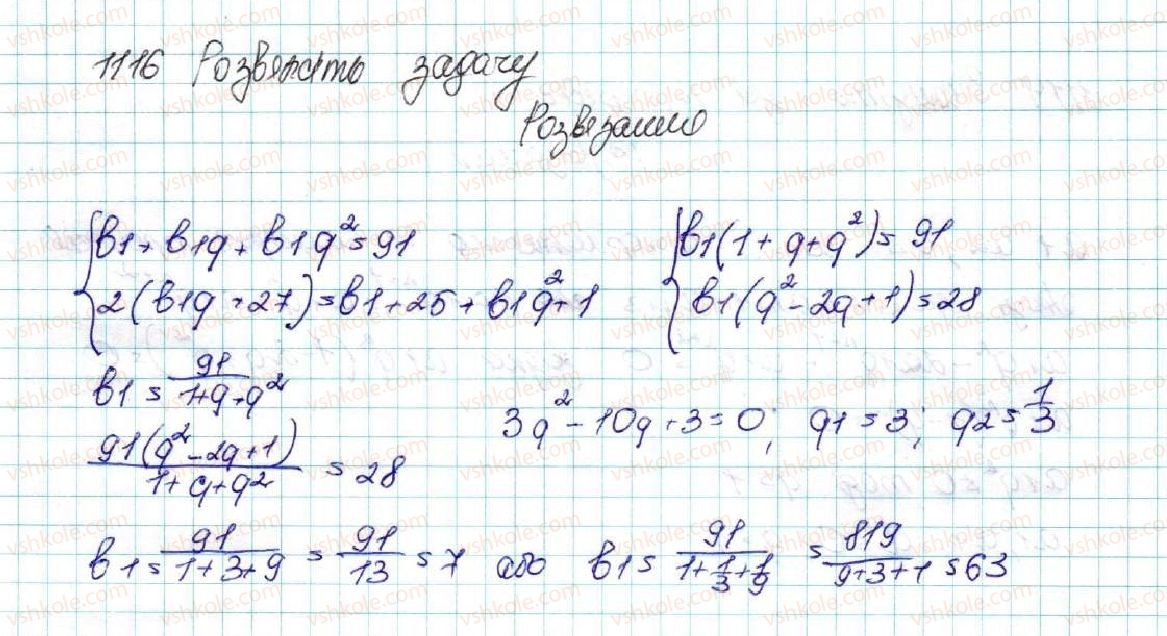 1116 Розвязать задачу
Розвезанно
{ b1 + b1q + b1q² = 91
2(b1q + 27) = b1 + 25 + b1q² + 1
{ b1(1 + q + q²) = 91
b1(q² - 2q + 1) = 28
b1 = 91 / (1 + q + q²)
91(q² - 2q + 1) / (1 + q + q²) = 28
3q² - 10q + 3 = 0; q1 = 3; q2 = 1/3
b1 = 91 / (1 + 3 + 9) = 91/13 = 7 або b1 = 91 / (1 + 1/3 + 1/9) = 819 / (9 + 3 + 1) = 63
vshkole.com